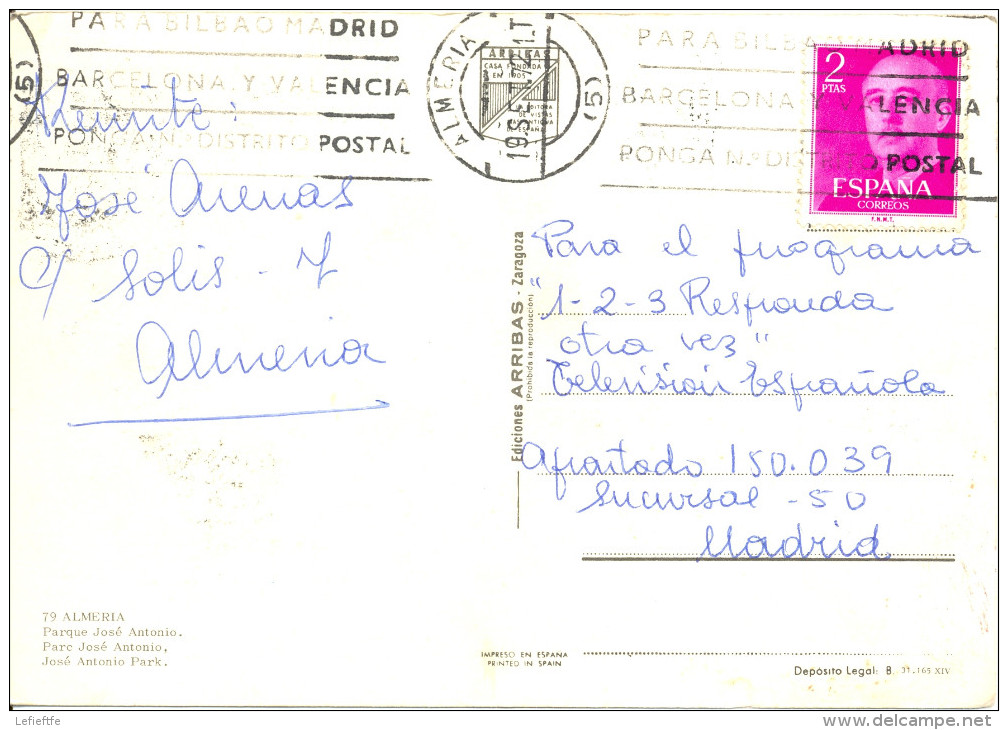 PARA BILBAO MADRID
BARCELONA Y VALENCIA
PONGA Nº DISTRITO POSTAL
(5)
ALMERIA
19 SET
(5)
ARRIBAS
CASA FUNDADA
EN 1905
LA EDITORA
DE VISTAS
MAS ANTIGUA
DE ESPAÑA
PARA BILBAO MADRID
BARCELONA Y VALENCIA
PONGA Nº DISTRITO POSTAL
2
PTAS
ESPAÑA
CORREOS
F.N.M.T.
Remite:
José Arenas
c/ Solis - 7
Almeria
Ediciones ARRIBAS - Zaragoza
(Prohibida la reproducción)
Para el programa
"1-2-3 Responda
otra vez"
Television Española
Apartado 150.039
Sucursal - 50
Madrid
79 ALMERIA
Parque José Antonio.
Parc José Antonio,
José Antonio Park.
IMPRESO EN ESPAÑA
PRINTED IN SPAIN
Depósito Legal: B. 31.165 XIV
Lefieftfe
delcampe.net